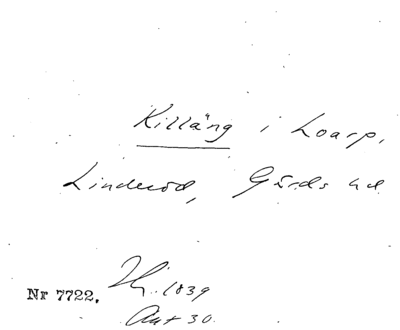 Killäng i Loarp,
Linderöd, Gärds hd
Nr 7722. Hj. 1839
Akt 30.